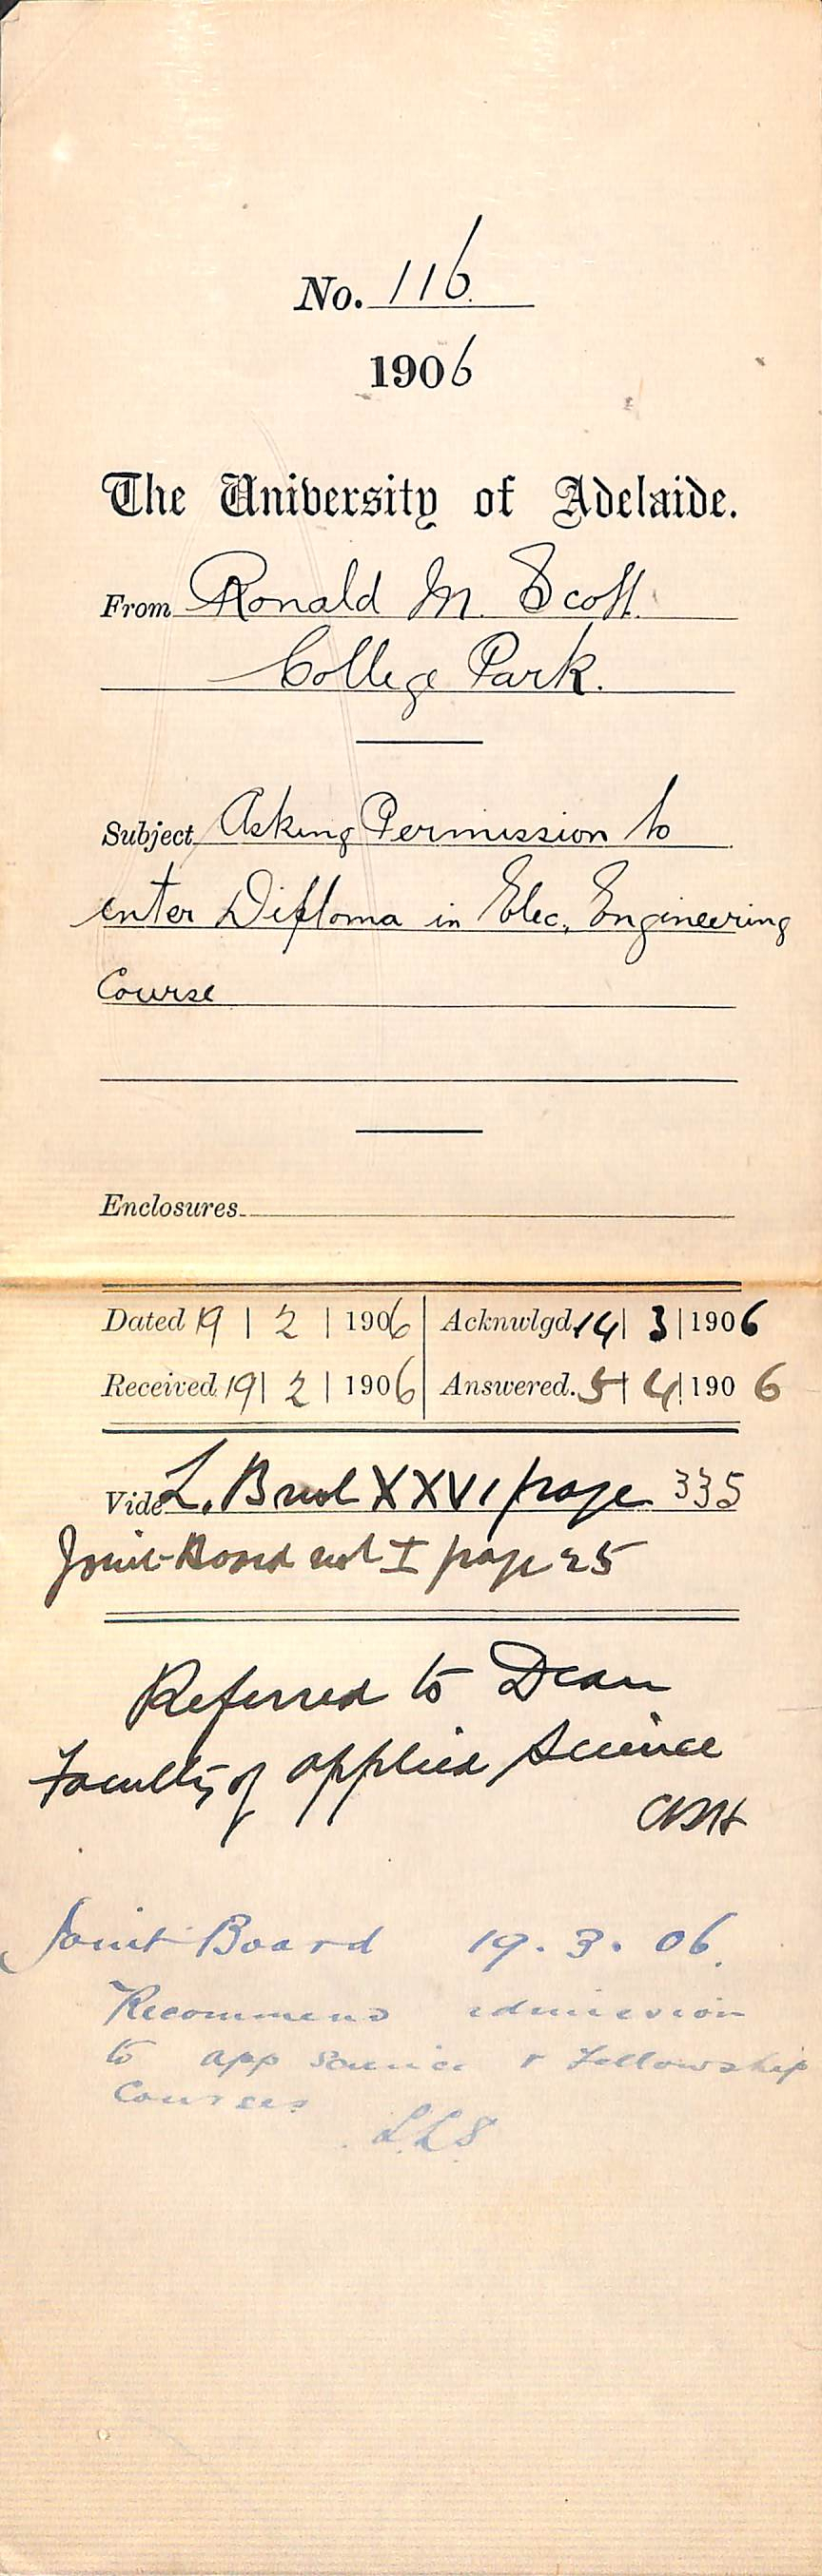 No. 116
1906
The University of Adelaide.
From Ronald M. Scott.
College Park.
Subject Asking Permission to
enter Diploma in Elec. Engineering
Course
Enclosures
Dated 19 | 2 | 1906 | Acknwlgd. 14 | 3 | 1906
Received 19 | 2 | 1906 | Answered. 5 | 4 | 1906
Vide L. XXVI page 335
Joint Board vol I page 25
Referred to Dean
Faculty of applied Science
Joint Board 19. 3. 06.
Recommend admission
to app science & Fellowship
Courses